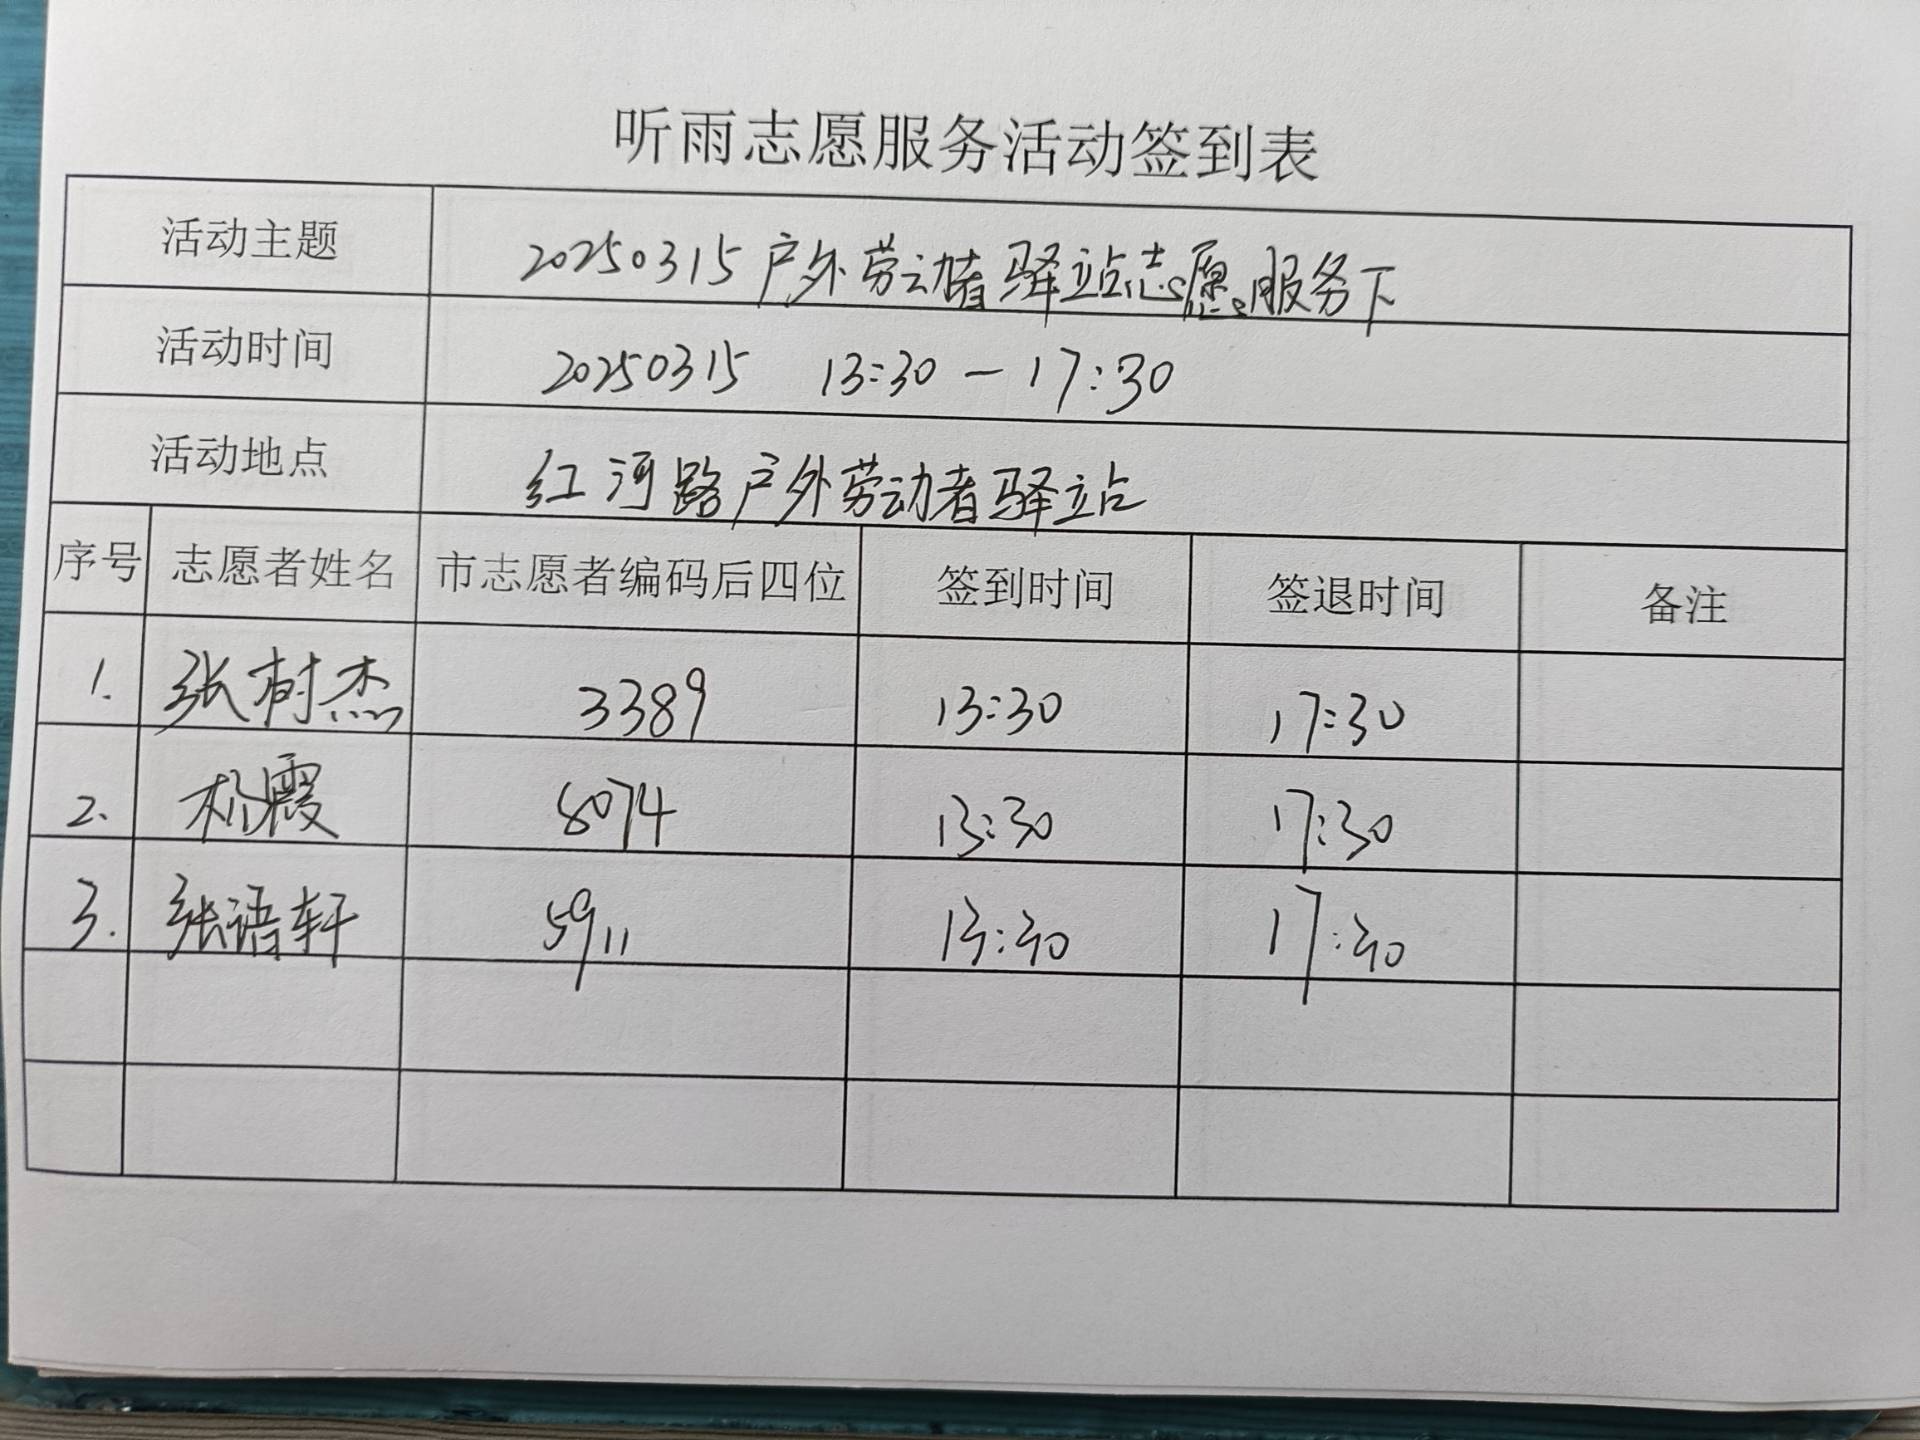 听雨志愿服务活动签到表
活动主题 20250315户外劳动者驿站志愿服务下
活动时间 20250315 13:30-17:30
活动地点 红河路户外劳动者驿站
序号 志愿者姓名 市志愿者编码后四位 签到时间 签退时间 备注
1. 张树杰 3389 13:30 17:30
2. 杨霞 8074 13:30 17:30
3. 张语轩 5911 13:30 17:30